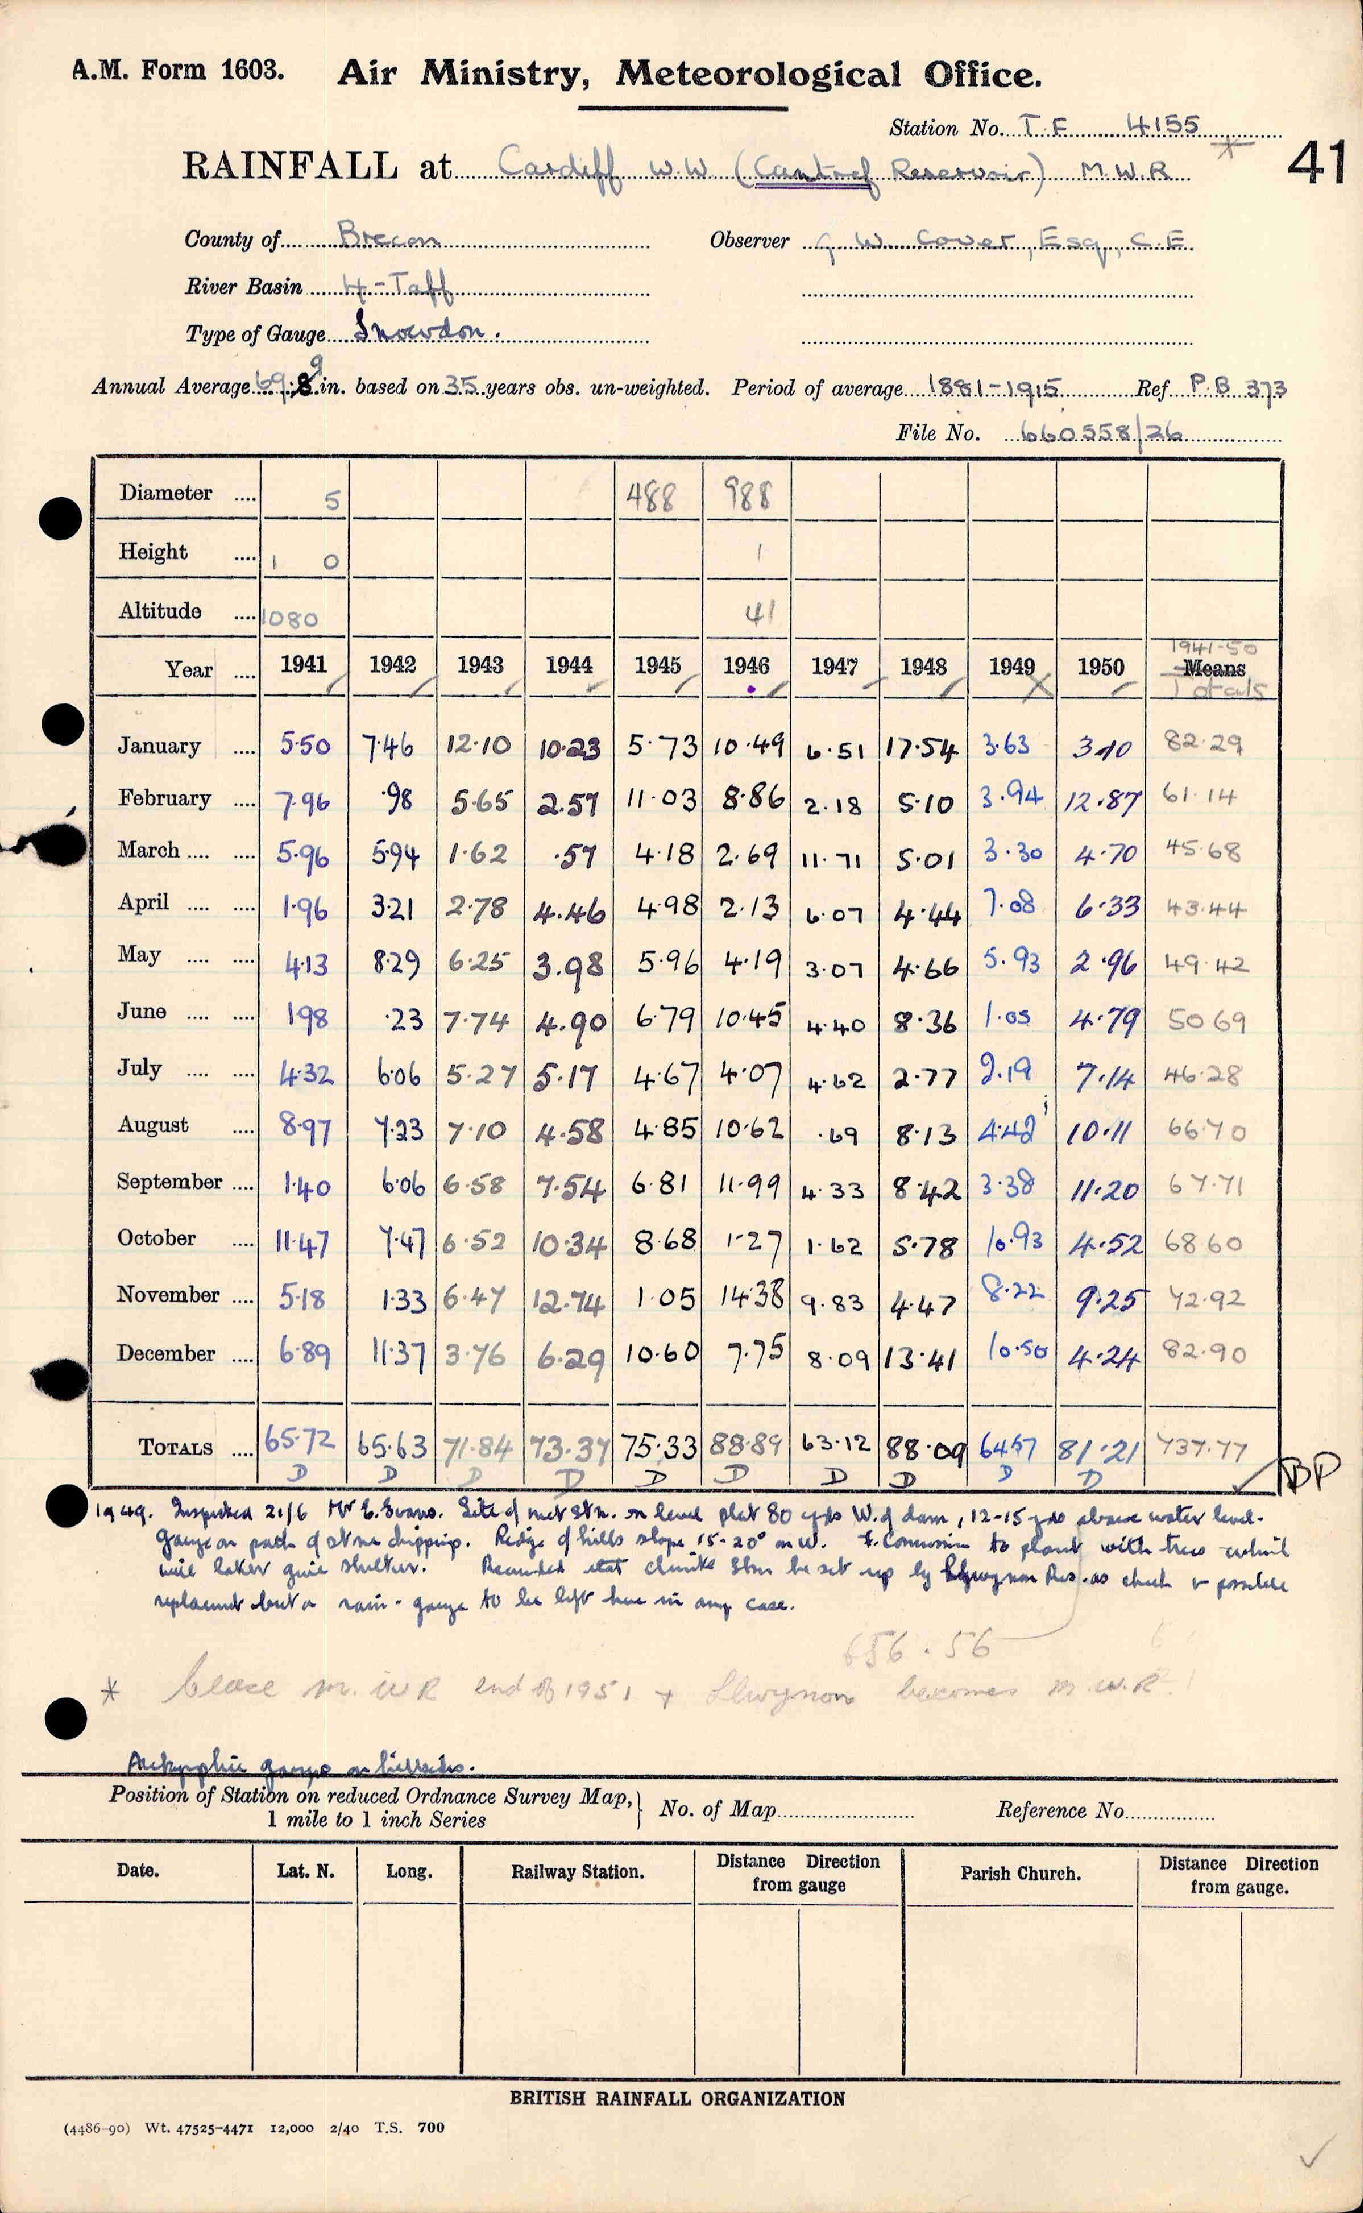 A.M. Form 1603. Air Ministry, Meteorological Office.
Station No. T.F 4155 *
RAINFALL at Cardiff W.W (Cantref Reservoir) M.W.R 41
County of Brecon Observer G W Cover, Esq, C.E.
River Basin 4-Taff
Type of Gauge Snowdon.
Annual Average 69.9 in. based on 35 years obs. un-weighted. Period of average 1881-1915 Ref P.B 373
File No. 660558/26
Diameter .... 5 488 988
Height .... 1 0 1
Altitude .... 1080 41
1941-50
Year .... 1941 1942 1943 1944 1945 1946 1947 1948 1949 1950 Means
Totals
January .... 5.50 7.46 12.10 10.23 5.73 10.49 6.51 17.54 3.63 3.10 82.29
February .... 7.96 .98 5.65 2.57 11.03 8.86 2.18 5.10 3.94 12.87 61.14
March .... .... 5.96 5.94 1.62 .57 4.18 2.69 11.71 5.01 3.30 4.70 45.68
April .... .... 1.96 3.21 2.78 4.46 4.98 2.13 6.07 4.44 7.08 6.33 43.44
May .... .... 4.13 8.29 6.25 3.98 5.96 4.19 3.07 4.66 5.93 2.96 49.42
June .... .... 1.98 .23 7.74 4.90 6.79 10.45 4.40 8.36 1.05 4.79 50 69
July .... .... 4.32 6.06 5.27 5.17 4.67 4.07 4.62 2.77 2.19 7.14 46.28
August .... 8.97 7.23 7.10 4.58 4.85 10.62 .69 8.13 4.42 10.11 66.70
September .... 1.40 6.06 6.58 7.54 6.81 11.99 4.33 8.42 3.38 11.20 67.71
October .... 11.47 7.47 6.52 10.34 8.68 1.27 1.62 5.78 10.93 4.52 68.60
November .... 5.18 1.33 6.47 12.74 1.05 14.38 9.83 4.47 8.22 9.25 72.92
December .... 6.89 11.37 3.76 6.29 10.60 7.75 8.09 13.41 10.50 4.24 82.90
TOTALS .... 65.72 65.63 71.84 73.37 75.33 88.89 63.12 88.09 64.57 81.21 737.77
D D D D D D D D D D BP
1949. Inspected 21/6 Mr E. Evans. Site of met stn. on level plat 80 yds W. of dam, 12-15 yds above water level.
Gauge on path of stone chipping. Ridge of hills slope 15-20° on W. to plant with trees which
will later give shelter. stn be set up by Llwynon Res. as check & possible
but a rain-gauge to be left here in any case.
656.56
* Cease M.W.R end of 1951 + Llwynon becomes M.W.R.
gauges on hillsides.
Position of Station on reduced Ordnance Survey Map, No. of Map Reference No.
1 mile to 1 inch Series
Date. Lat. N. Long. Railway Station. Distance Direction from gauge Parish Church. Distance Direction from gauge.
BRITISH RAINFALL ORGANIZATION
(4486-90) Wt. 47525-4471 12,000 2/40 T.S. 700